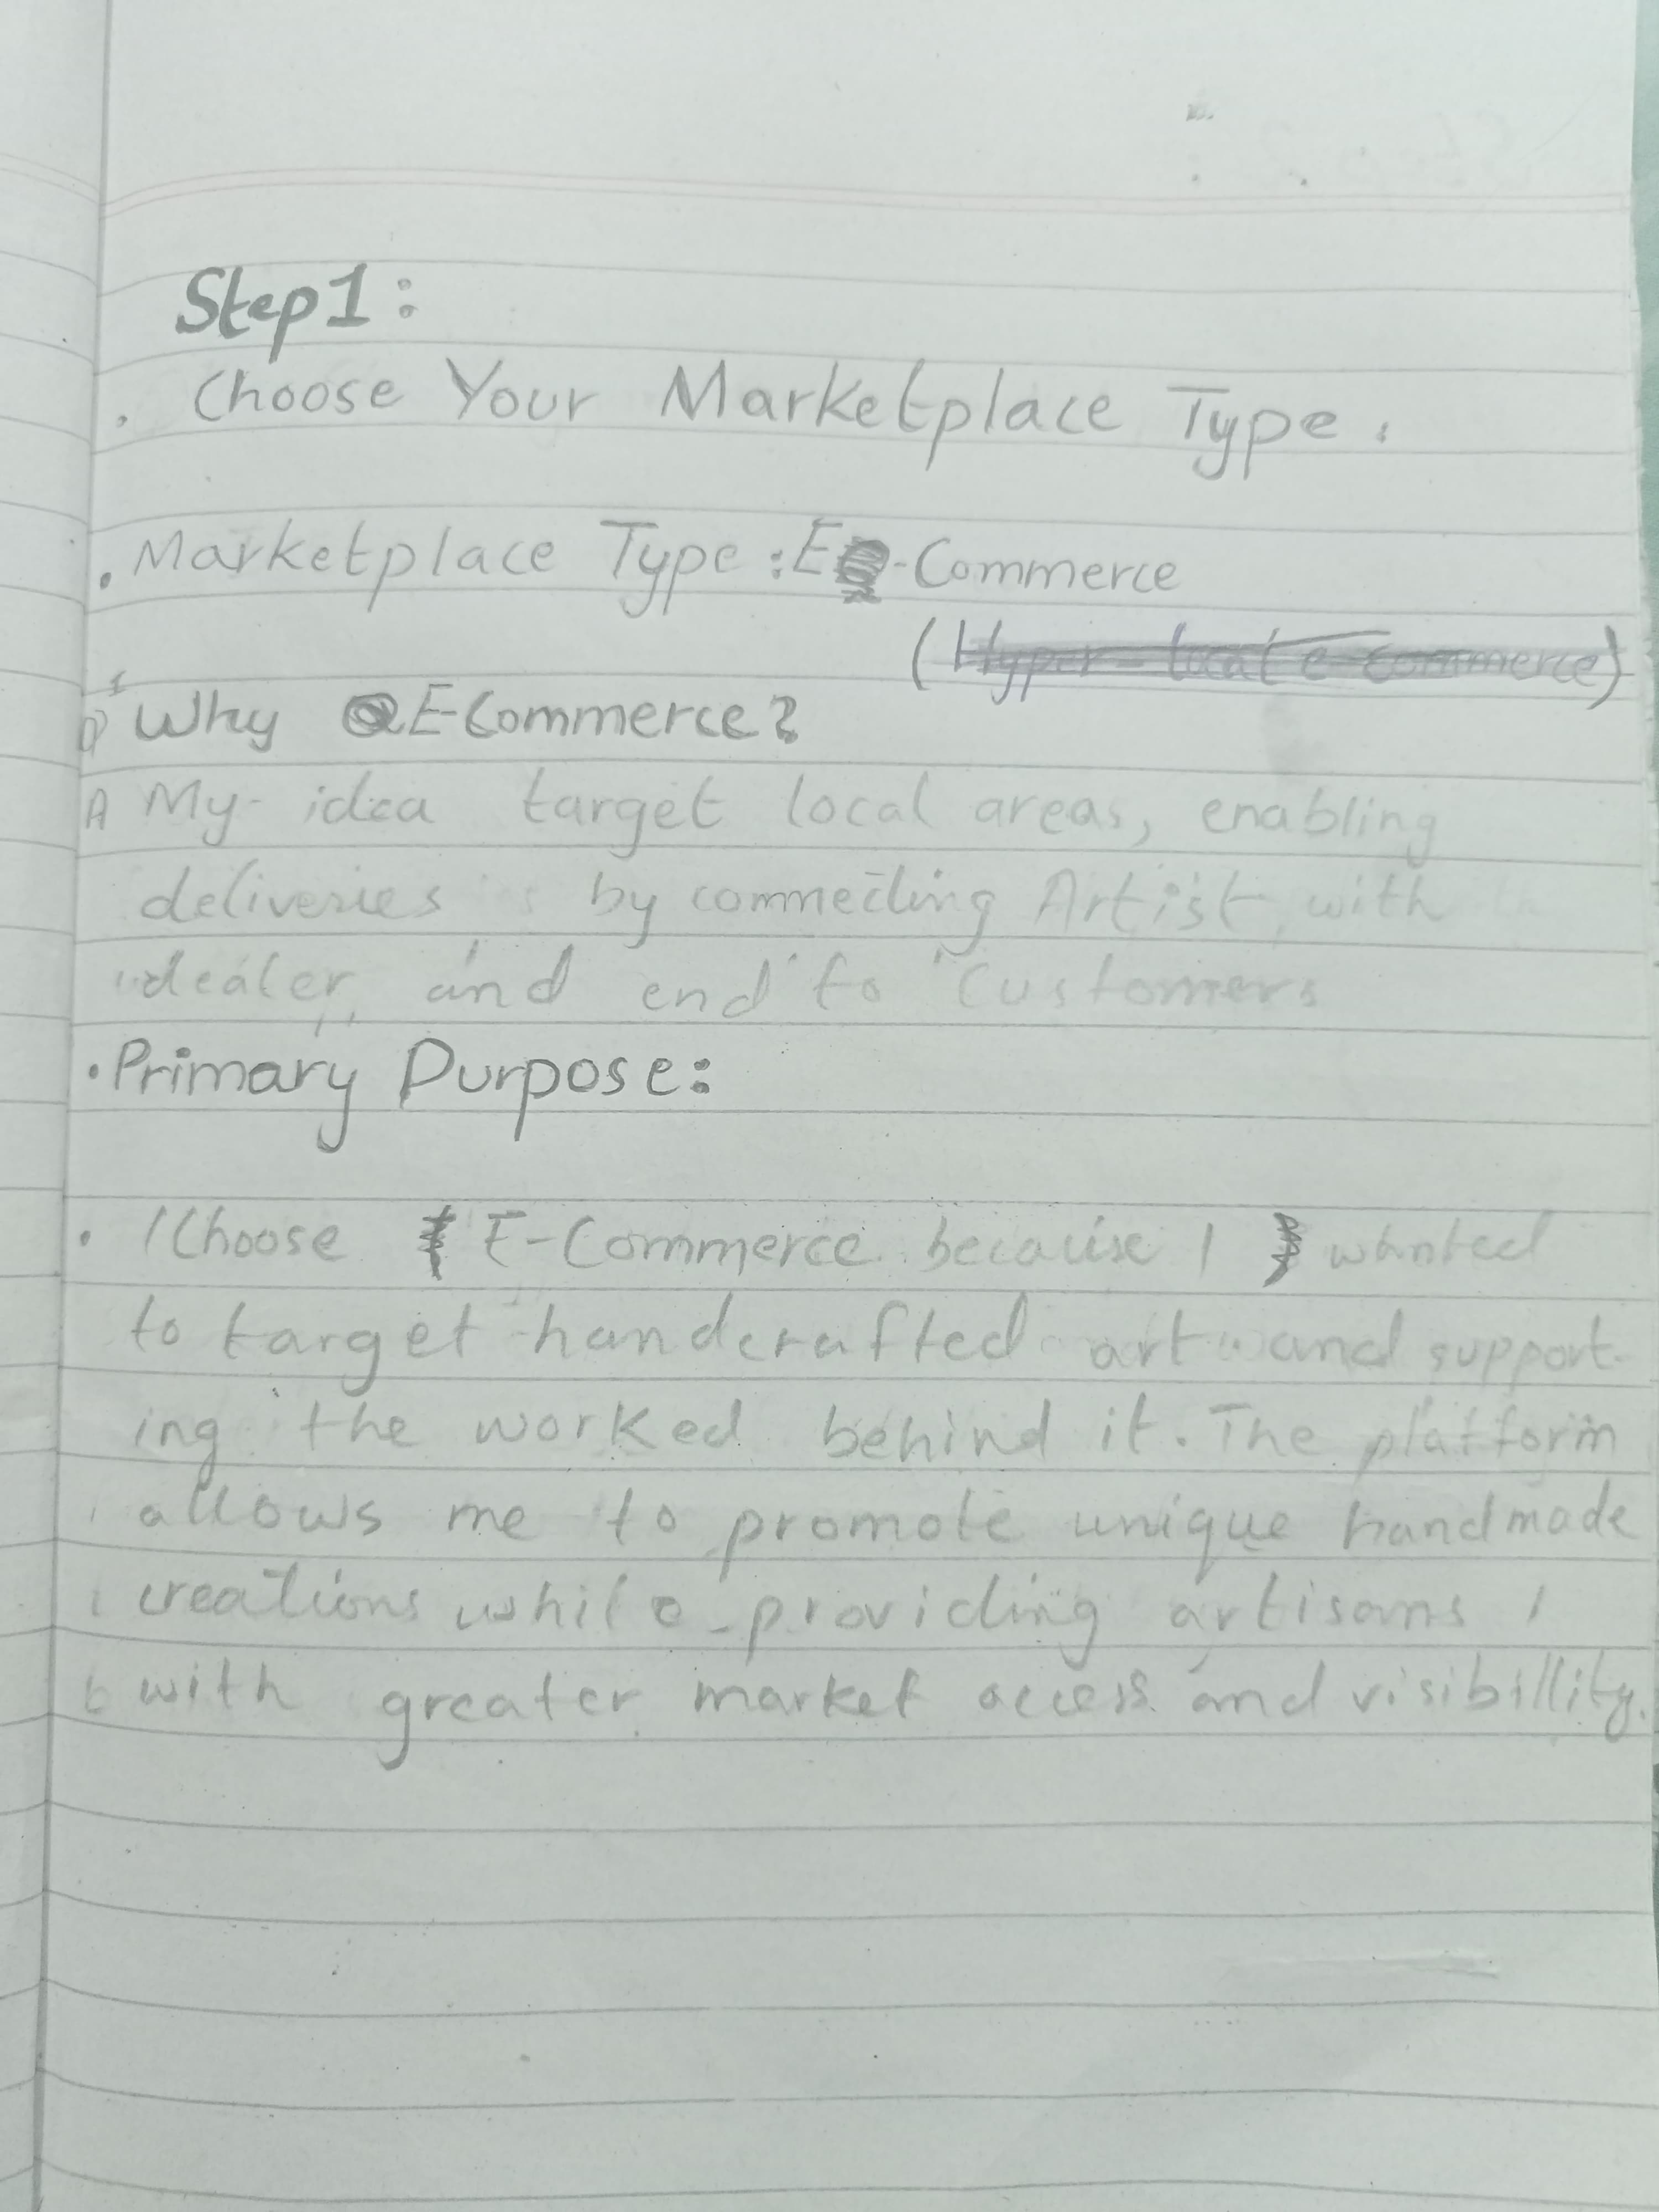 Step1:
. Choose Your Marketplace Type.
. Marketplace Type : E-Commerce
(Hyper-local e-commerce)
Why E-Commerce?
A My idea target local areas, enabling
deliveries by connecting Artist with
dealer, and end to Customers
. Primary Purpose:
. I Choose E-Commerce because I wanted
to target handcrafted art and support-
ing the worked behind it. The platform
allows me to promote unique handmade
creations while providing artisans
with greater market access and visibillity.